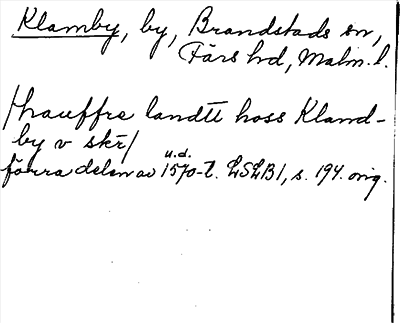 Klamby, by, Brandstads sn,
Färs hd, Malm. l.
/hauffre landtt hoss Kland-
by v skr/
u.d.
förra delen av 1570-t. LSLB1, s. 194. orig.